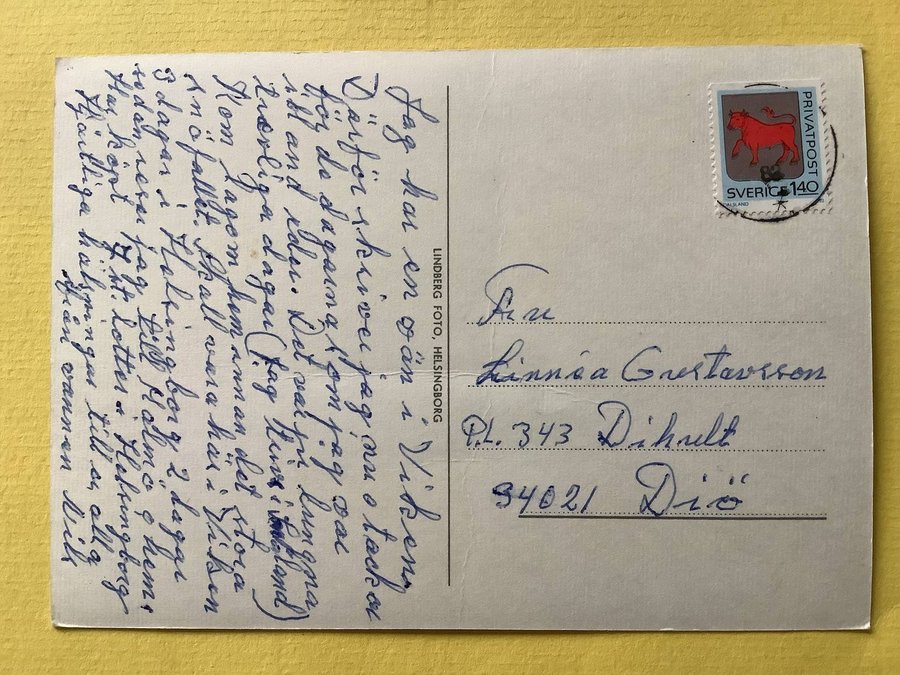 Jag har en vän i Viken,
Därför skriver jag nu o tackar
för de dagarna som jag var
ibland eder. Det var ju lungna
trevliga dagar (Jag
Kom lagom hem innan det stora
snöfallet. Skall vara här i Viken
3 dagar i Helsingborg 2 dagar
sedan reser jag till Malmö o hem.
Har köpt lotter i Helsingborg
Hjärtliga hälsningar till er alla
från vännen Nils
LINDBERG FOTO, HELSINGBORG
PRIVATPOST
SVERIGE 140
DALSLAND
83
Fru
Linnéa Gustavsson
P.L. 343 Dihult
34021 Diö